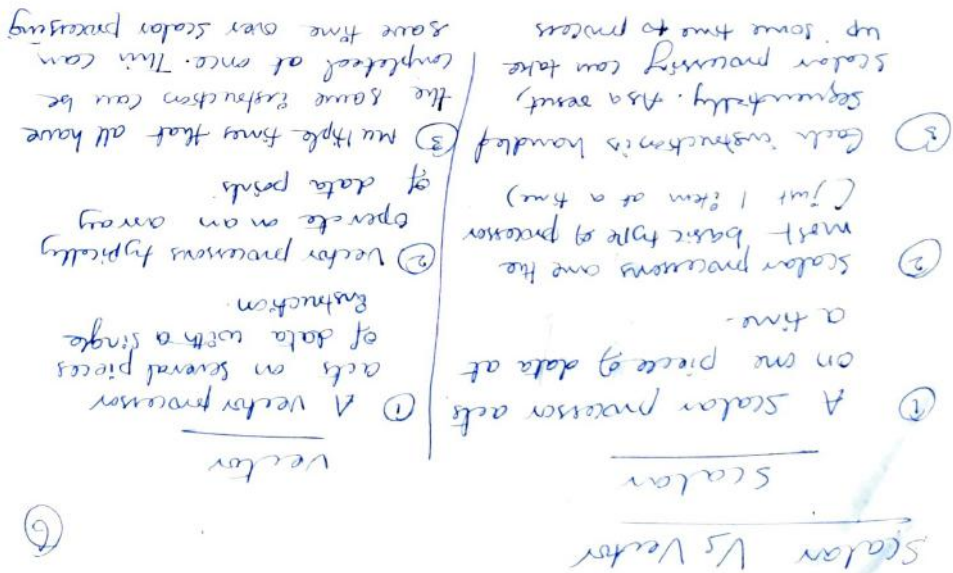 Scalar Vs Vector
6
Scalar
① A Scalar processor acts
on one piece of data at
a time.
② Scalar processors are the
most basic type of processor
(just 1 item at a time)
③ Each instruction is handled
sequentially. As a result,
Scalar processing can take
up some time to process
Vector
① A vector processor
acts on several pieces
of data with a single
instruction.
② Vector processors typically
operate on an array
of data points.
③ Multiple times that all have
the same instruction can be
completed at once. This can
save time over scalar processing